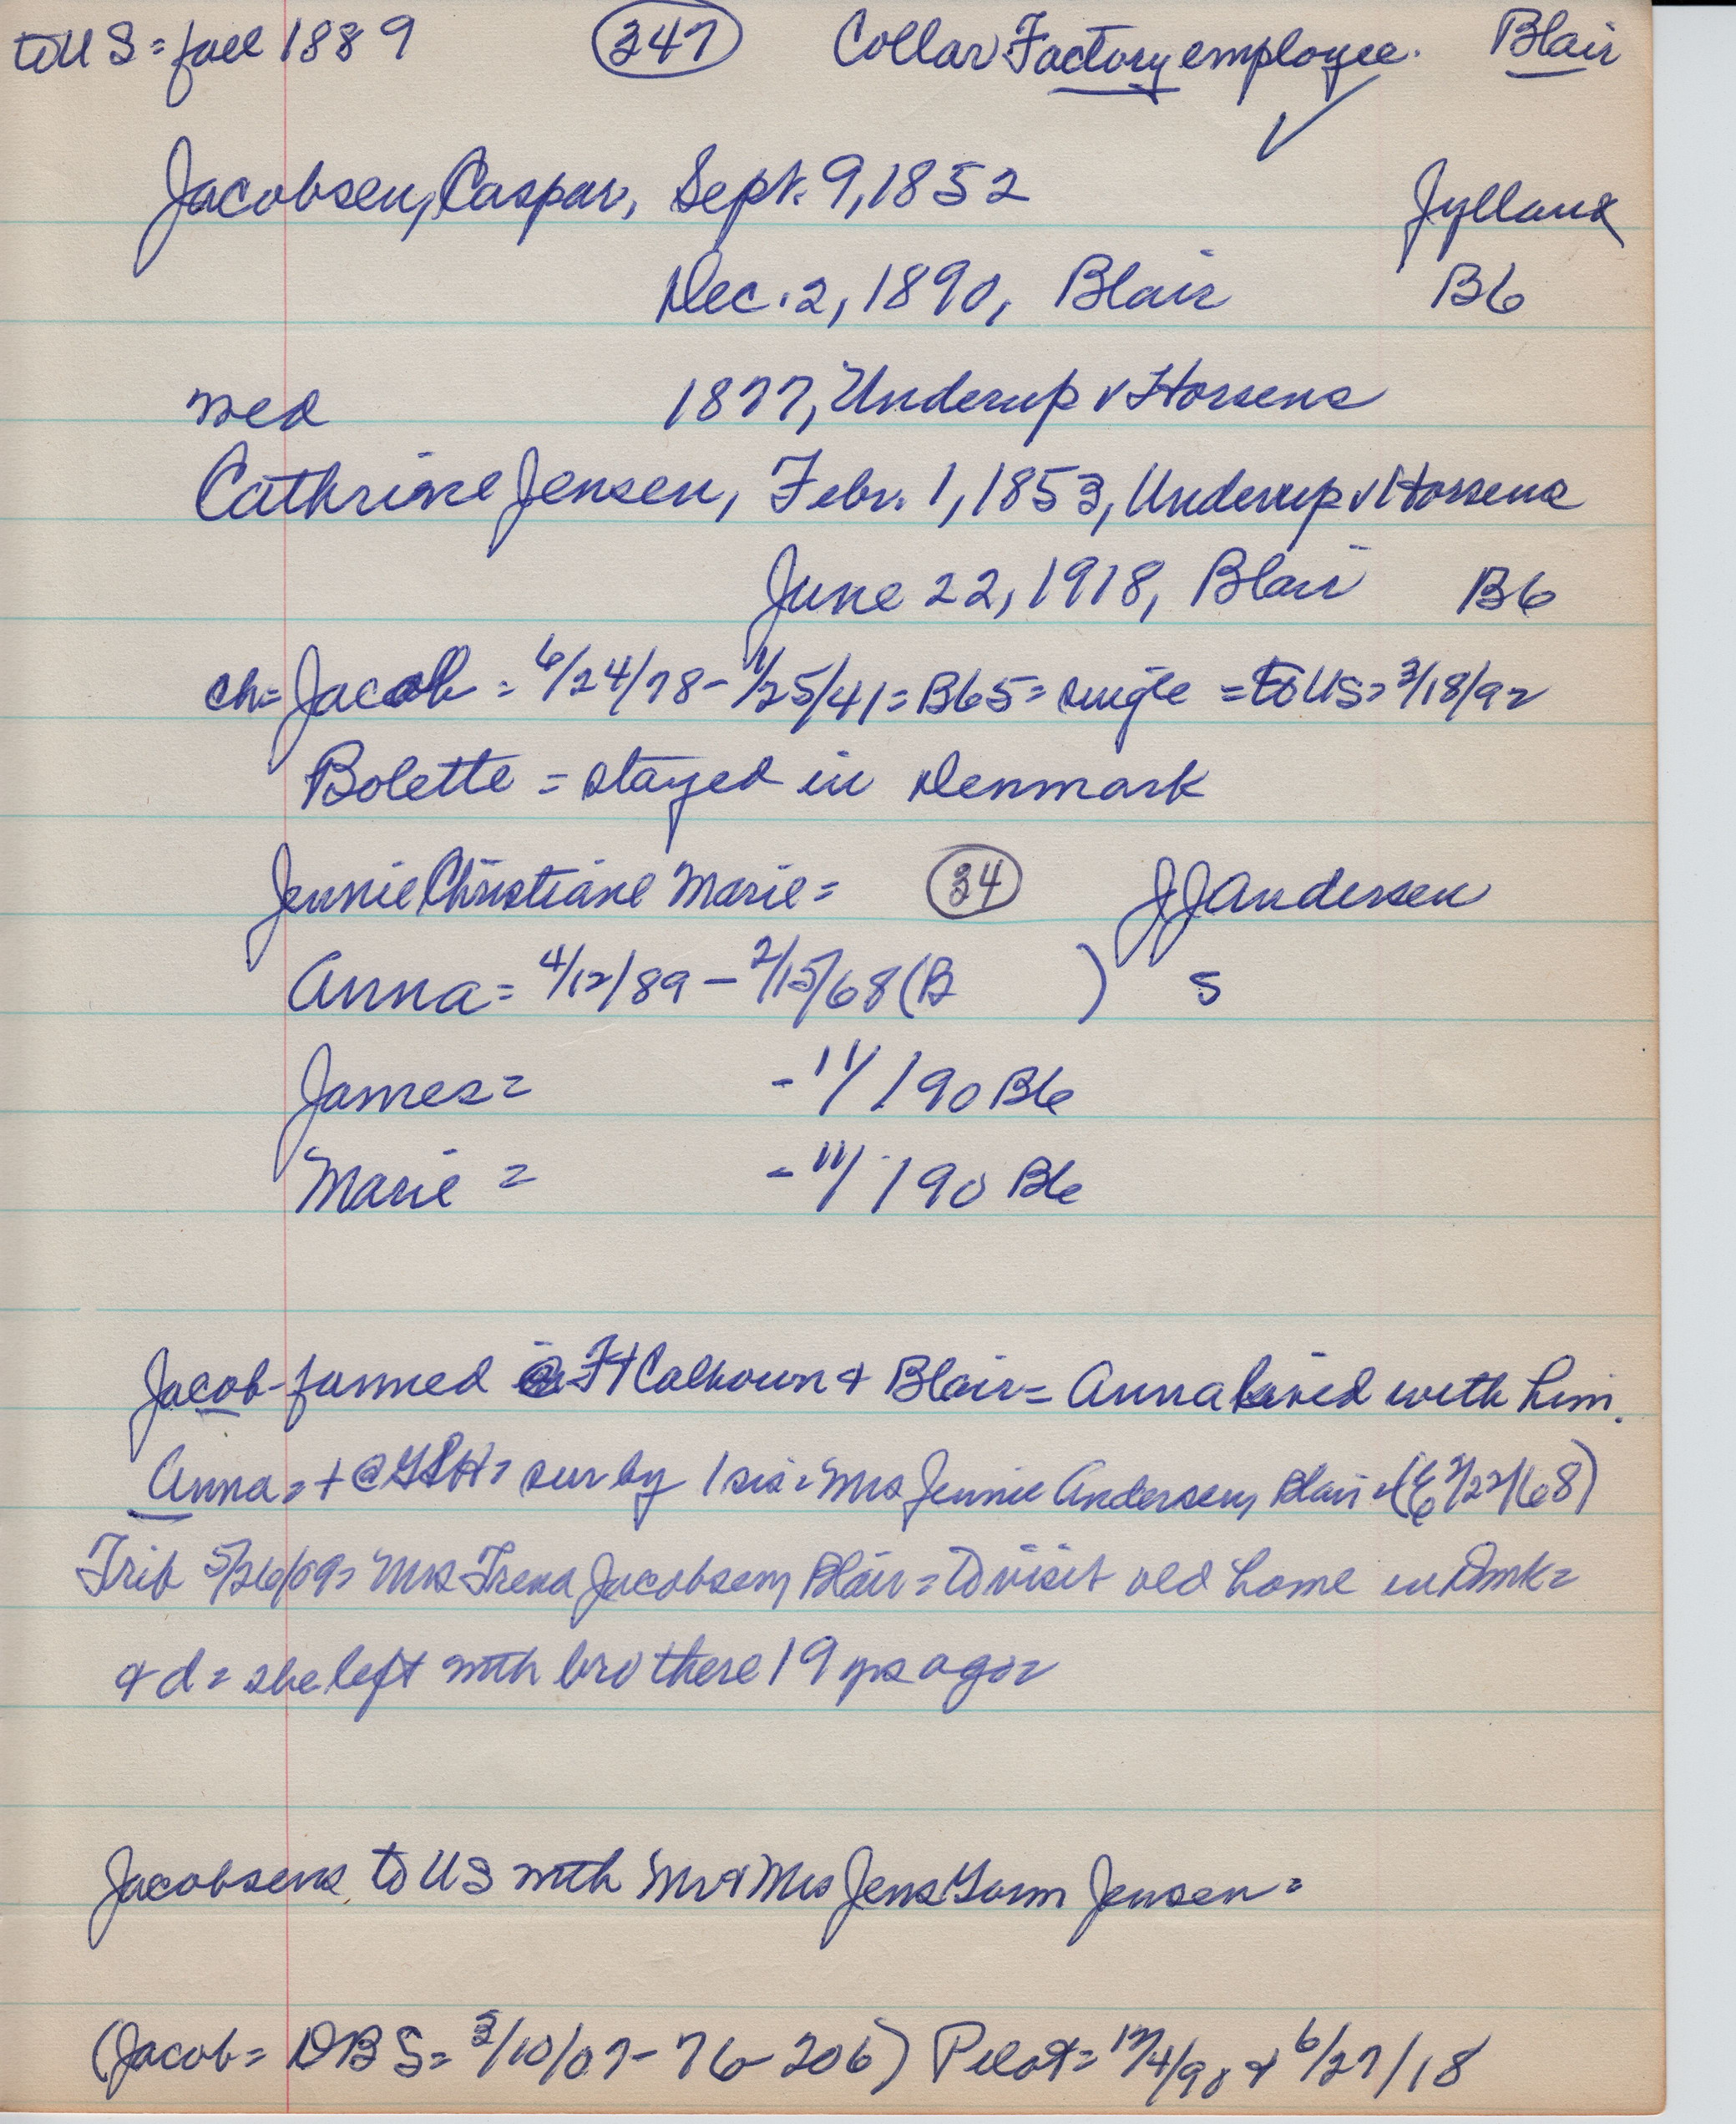 to US = fall 1889 347 Collar Factory employee. Blair
Jacobsen, Caspar, Sept. 9, 1852 Jylland
Dec. 2, 1890, Blair B6
med 1877, Underup v Horsens
Cathrine Jensen, Febr. 1, 1853, Underup v Horsens
June 22, 1918, Blair B6
ch = Jacob = 6/24/78 - 1/25/41 = B65 = single = to US = 3/18/92
Bolette = stayed in Denmark
Jennie Christiane Marie = 34 J J Andersen
Anna = 4/12/89 - 2/15/68 (B ) S
James = - 11/ /90 B6
Marie = - 11/ /90 B6
Jacob - farmed Ft Calhoun + Blair = Anna lived with him.
Anna = + @ sur by 1 sis = Mrs Jennie Andersen, Blair = (E 2/22/68)
Trib 5/26/09 = Mrs Trena Jacobsen, Blair = to visit old home in Dmk =
+ d = she left with bro there 19 yrs ago =
Jacobsens to US with Mr + Mrs Jens Jensen =
(Jacob = DBS = 3/10/07 - 76 - 206) Pilot = 12/4/90 + 6/27/18